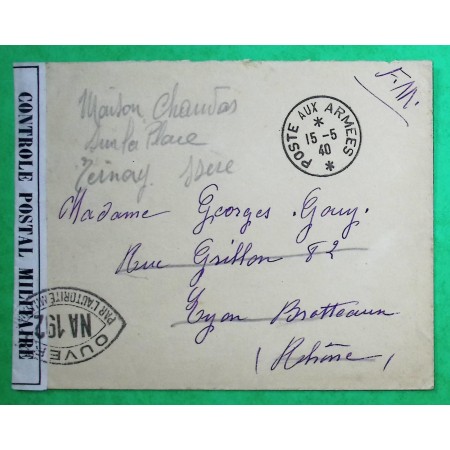 CONTROLE POSTAL MILITAIRE
F.M.
Maison Chandas
Sur la Place
Ternay Isère
POSTE AUX ARMEES
15-5
40
Madame Georges Gouy
Rue Grillon 82
Lyon Brotteaux
(Rhône)
OUVERT
PAR L'AUTORITE MI
NA 192